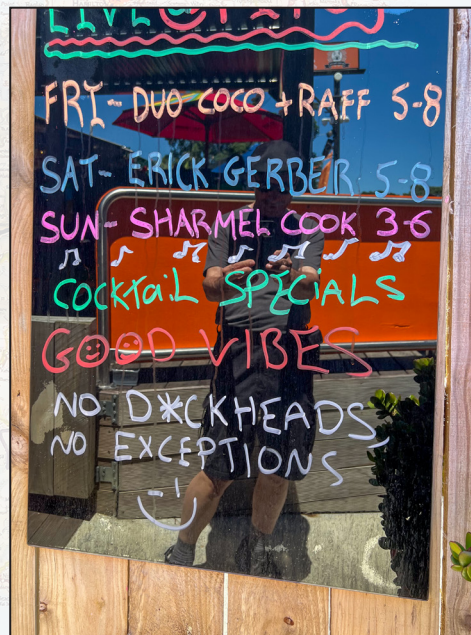 LIVE @
FRI- DUO COCO + RAFF 5-8
SAT- ERICK GERBER 5-8
SUN- SHARMEL COOK 3-6
COCKTAIL SPECIALS
GOOD VIBES
NO D*CKHEADS,
NO EXCEPTIONS